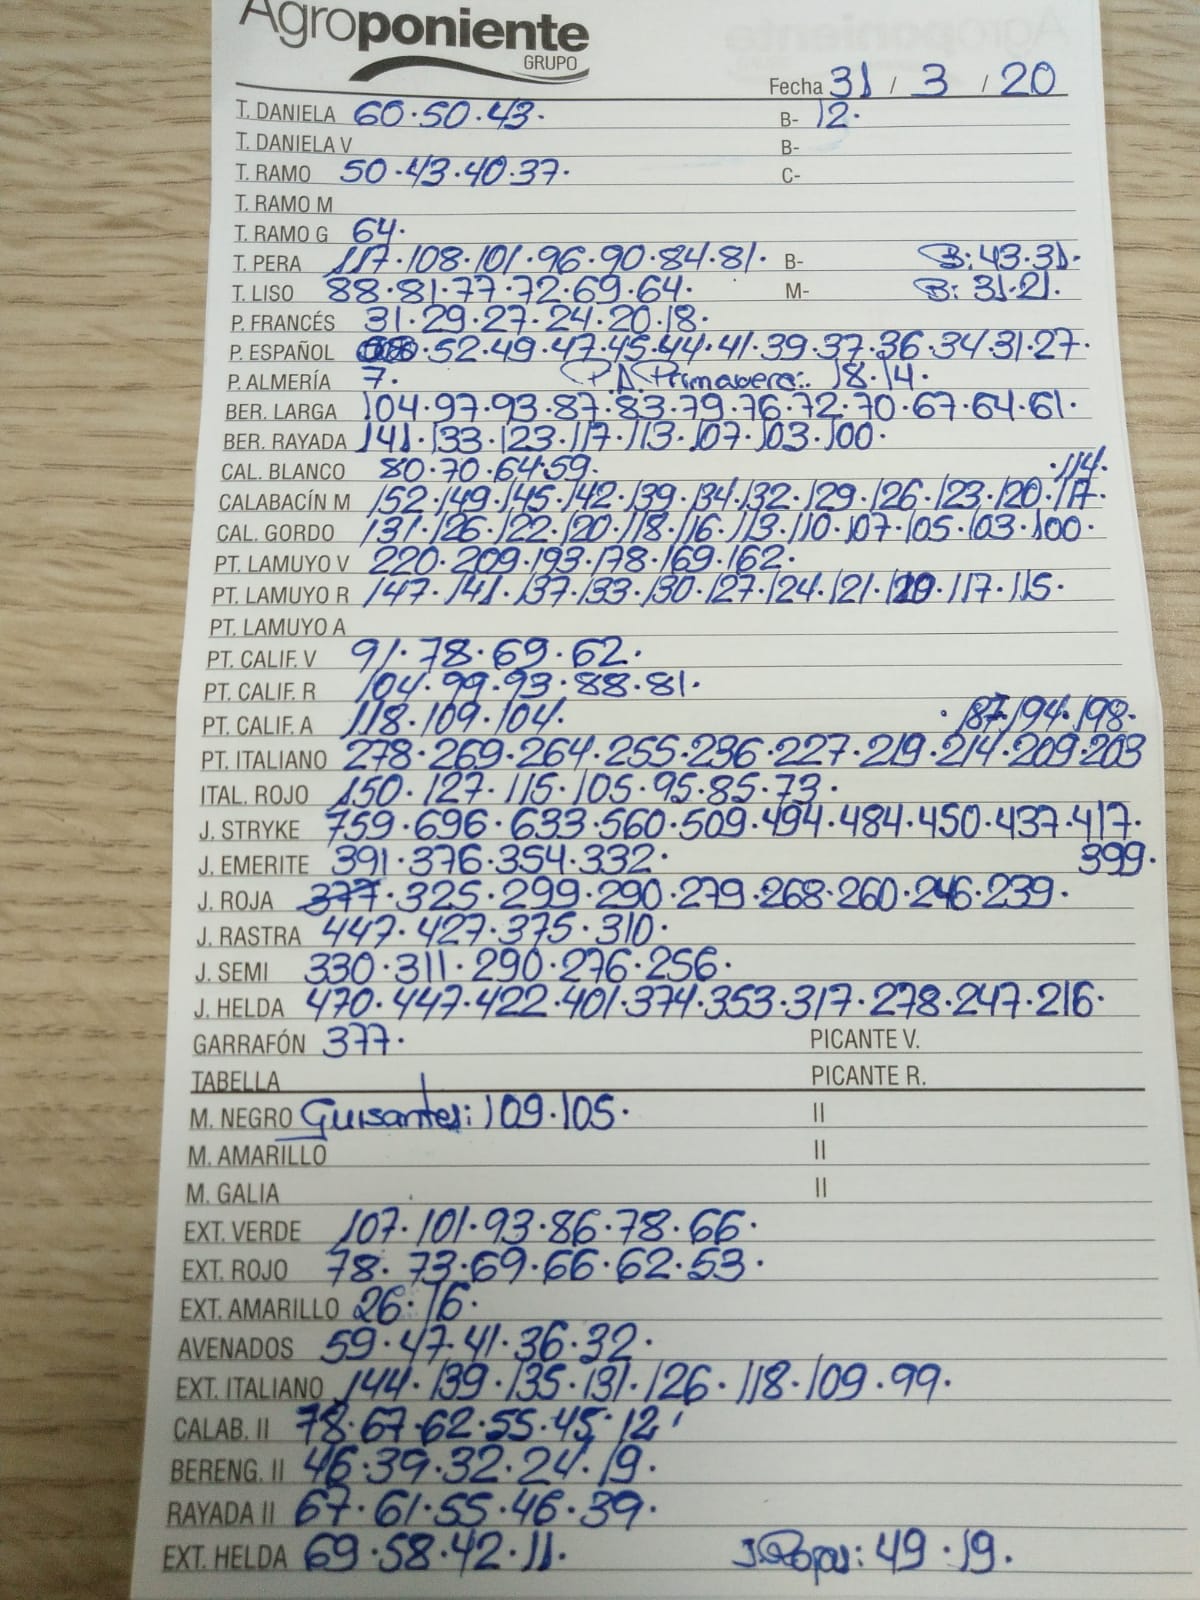 Agroponiente
GRUPO
Fecha 31 / 3 / 20
T. DANIELA 60·50·43· B- 12·
T. DANIELA V B-
T. RAMO 50·43·40·37· C-
T. RAMO M
T. RAMO G 64·
T. PERA 117·108·101·96·90·84·81· B- B:43·31·
T. LISO 88·81·77·72·69·64· M- B: 31·21·
P. FRANCÉS 31·29·27·24·20·18·
P. ESPAÑOL ·52·49·47·45·44·41·39·37·36·34·31·27·
P. ALMERÍA 7· P.A Primavera: 18·14·
BER. LARGA 104·97·93·87·83·79·76·72·70·67·64·61·
BER. RAYADA 141·133·123·117·113·107·103·100·
CAL. BLANCO 80·70·64·59· ·114·
CALABACÍN M 152·149·145·142·139·134·132·129·126·123·120·117·
CAL. GORDO 131·126·122·120·118·116·113·110·107·105·103·100·
PT. LAMUYO V 220·209·193·178·169·162·
PT. LAMUYO R 147·141·137·133·130·127·124·121· ·117·115·
PT. LAMUYO A
PT. CALIF. V 91·78·69·62·
PT. CALIF. R 104·99·93·88·81·
PT. CALIF. A 118·109·104· ·187·194·198·
PT. ITALIANO 278·269·264·255·236·227·219·214·209·203
ITAL. ROJO 150·127·115·105·95·85·73·
J. STRYKE 759·696·633·560·509·494·484·450·437·417·
J. EMERITE 391·376·354·332· 399·
J. ROJA 377·325·299·290·279·268·260·246·239·
J. RASTRA 447·427·375·310·
J. SEMI 330·311·290·276·256·
J. HELDA 470·447·422·401·374·353·317·278·247·216·
GARRAFÓN 377· PICANTE V.
TABELLA PICANTE R.
M. NEGRO Guisantes: 109·105· II
M. AMARILLO II
M. GALIA II
EXT. VERDE 107·101·93·86·78·66·
EXT. ROJO 78·73·69·66·62·53·
EXT. AMARILLO 26·16·
AVENADOS 59·47·41·36·32·
EXT. ITALIANO 144·139·135·131·126·118·109·99·
CALAB. II 78·67·62·55·45·12·
BERENG. II 46·39·32·24·19·
RAYADA II 67·61·55·46·39·
EXT. HELDA 69·58·42·11· 49·19·